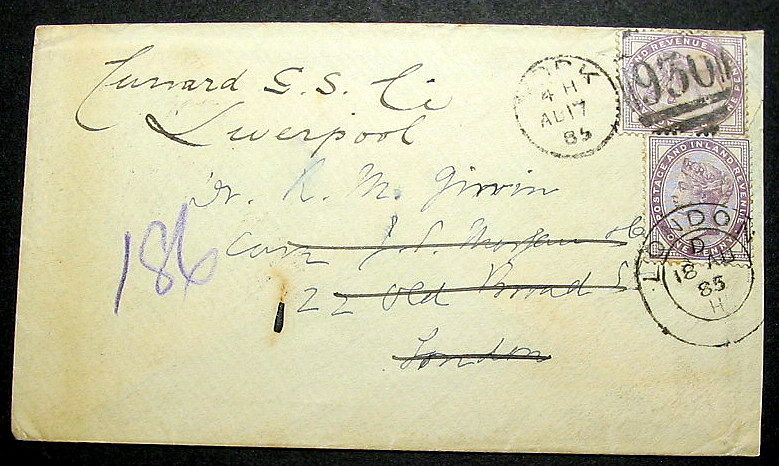 Cunard S. S. Co
Liverpool
Dr. R. M. Girvin
Care J. S. Morgan & Co
22 Old Broad S
London
186
YORK
4 H
AU 17
85
930
ND REVENUE
POSTAGE AND INLAND REVENUE
ONE PENNY
LONDO
D
18 AU
85
H